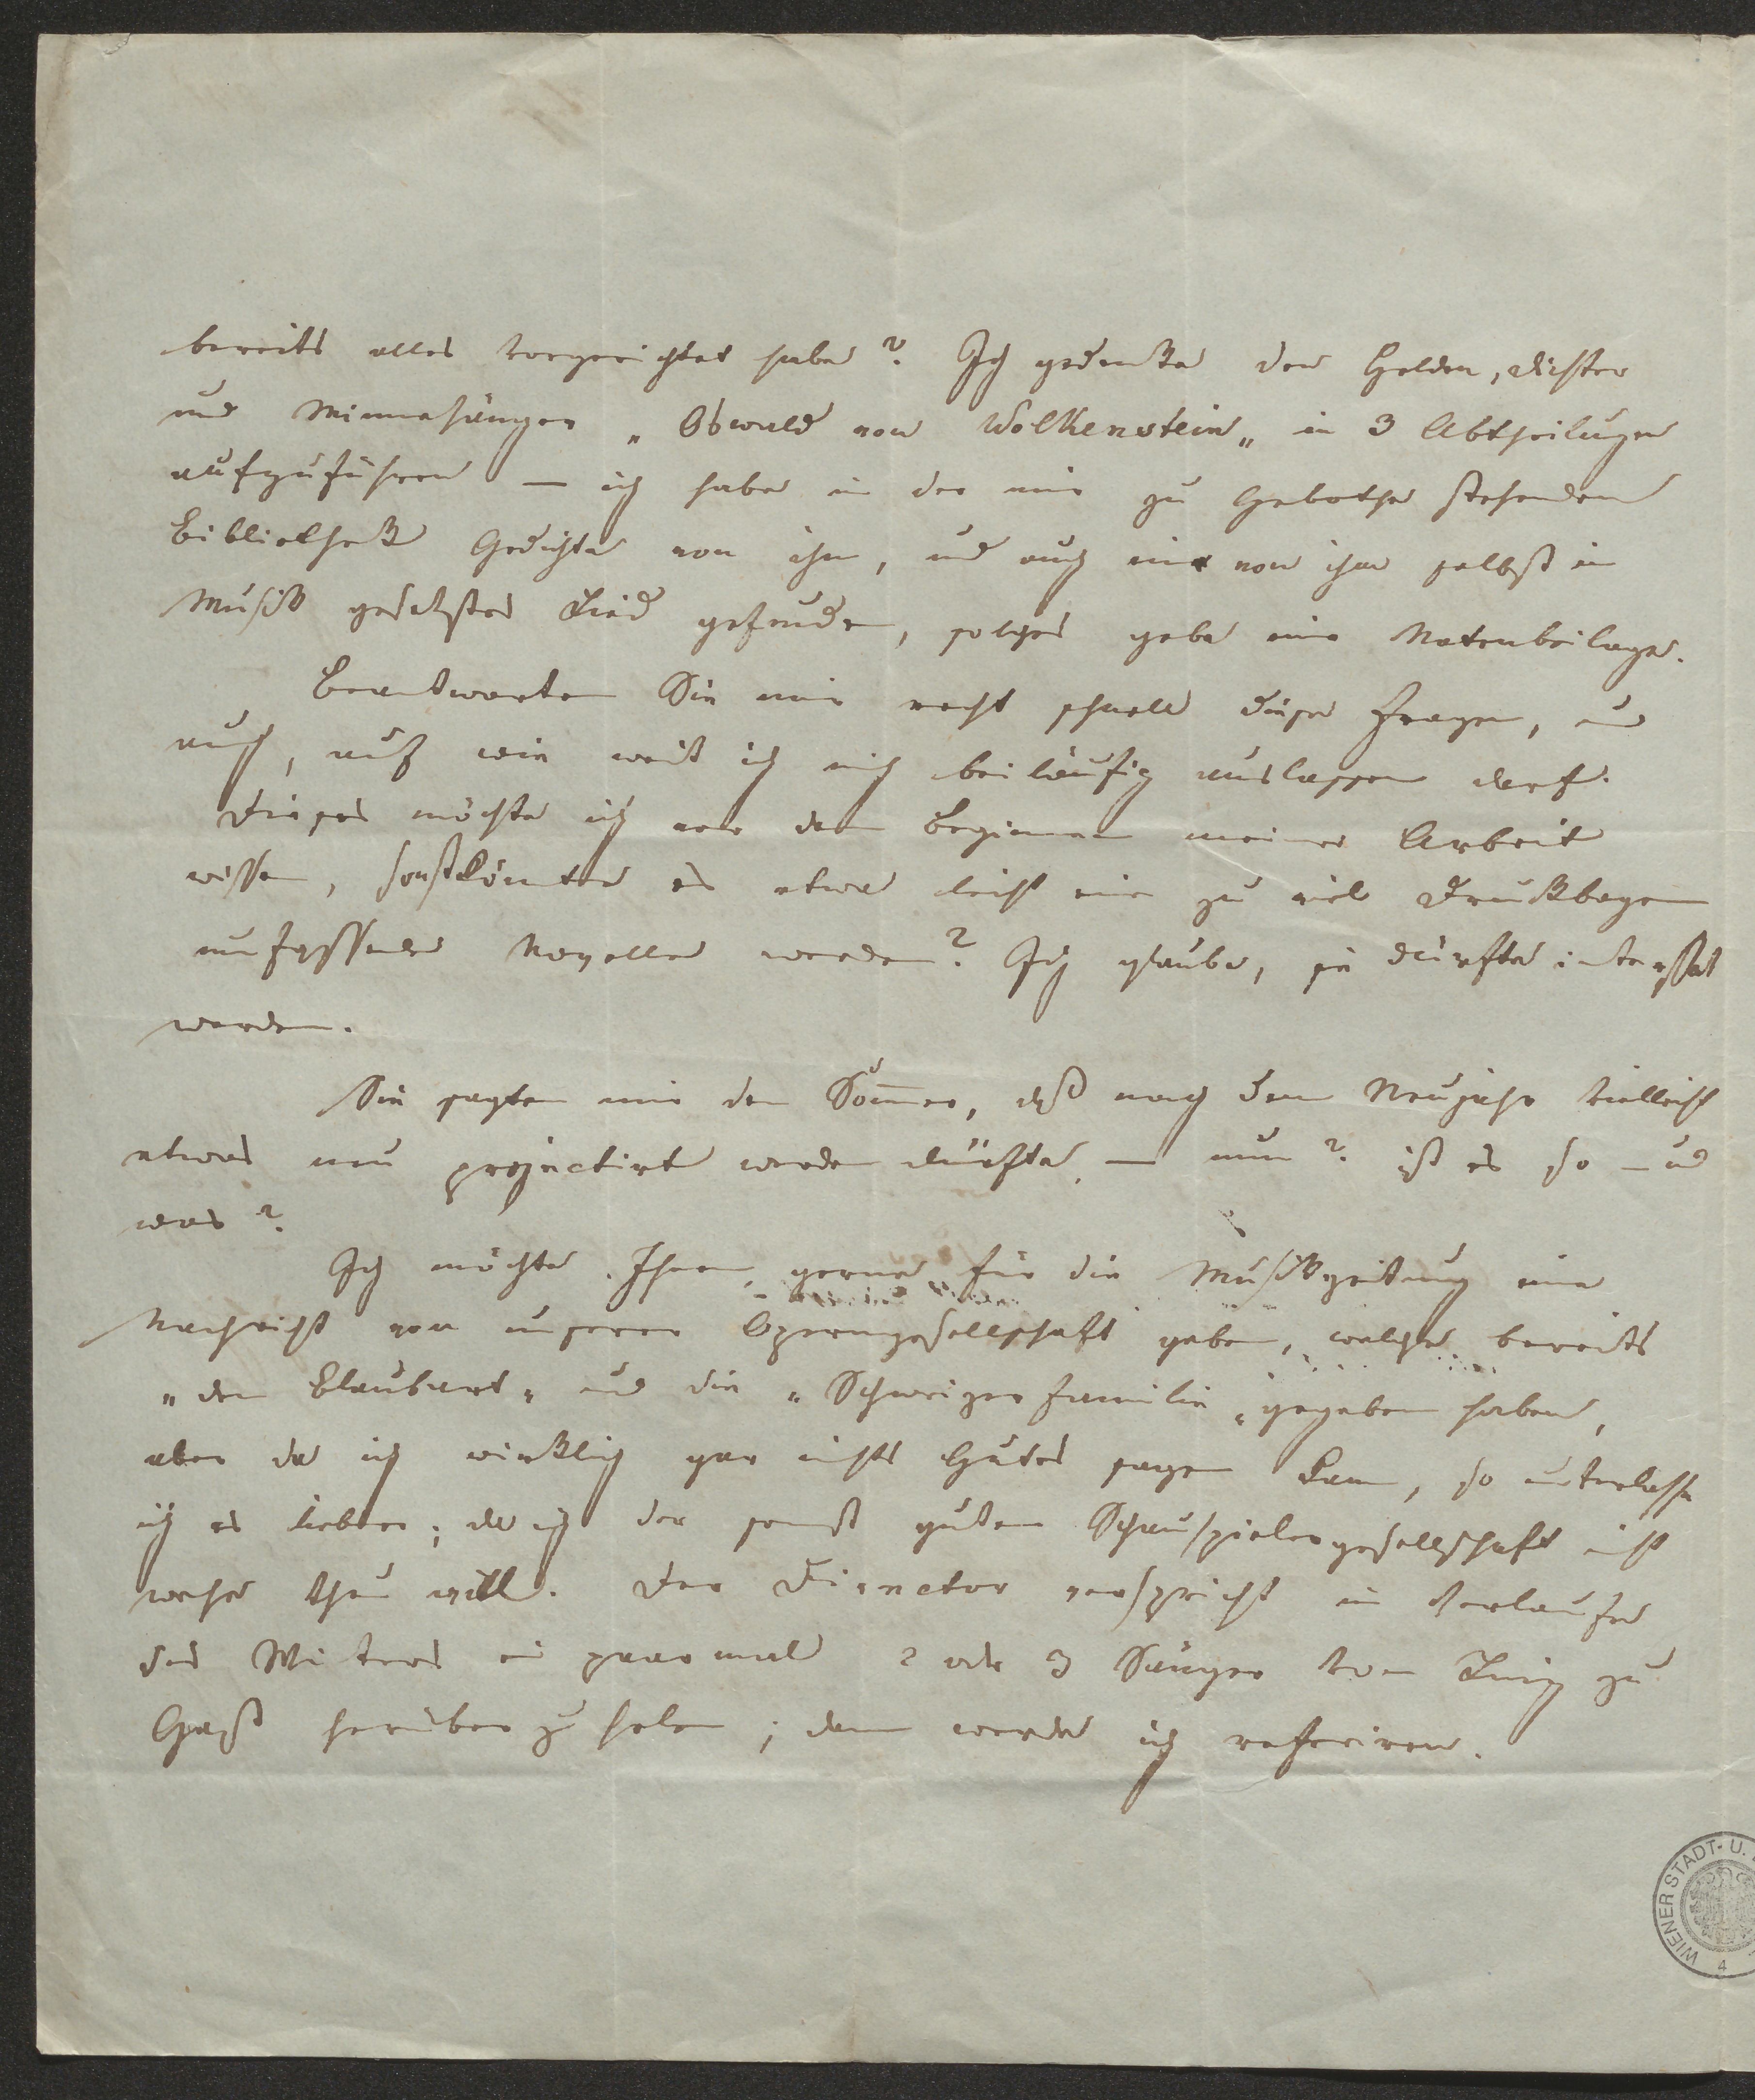 bereits alles vorgerichtet habe? Ich gedenke den Helden, Dichter
und Minnesänger „Oswald von Wolkenstein„ in 3 Abtheilungen
aufzuführen — ich habe in der mir zu Gebothe stehenden
Bibliothek Gedichte von ihm, und auch ein von ihm selbst in
Musik gesetztes Lied gefunden, solches gebe eine Notenbeilage.
Beantworten Sie mir recht schnell diese Fragen, und
auch, auf wie weit ich mich beiläufig auslassen darf.
Dieses möchte ich vor dem Beginnen meiner Arbeit
wissen, sonst könnte es etwa leicht eine zu viel Druckbogen
umfassende Novelle werden? Ich glaube, sie dürfte interessant
werden.
Sie sagten mir den Som̅er, daß nach dem Neujahr vielleicht
etwas neu projectirt werden dürfte, — nun? ist es so — und
was?
Ich möchte Ihnen gerne für die Musikzeitung eine
Nachricht von unserer Operngesellschaft geben, welche bereits
„den Blaubart„ und die „Schweizerfamilie„ gegeben haben,
aber da ich wirklich gar nichts Gutes sagen kann, so unterlasse
ich es lieber; da ich der sonst guten Schauspielergesellschaft nicht
wehe thun will. Der Director verspricht im Verlaufe
des Winters ein paar mal 2 oder 3 Sänger von Linz zu
Gast herüber zu holen; dann werde ich referiren.
WIENER STADT- U.
4